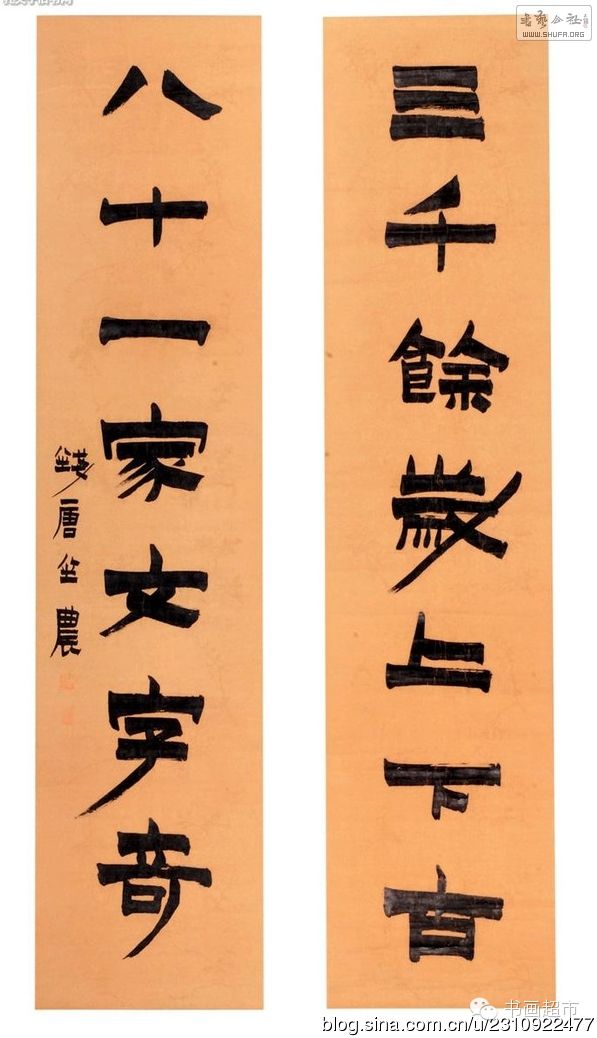 三千餘歲上下古
八十一家文字奇
錢唐金農
书艺公社
WWW.SHUFA.ORG
书画超市
blog.sina.com.cn/u/2310922477